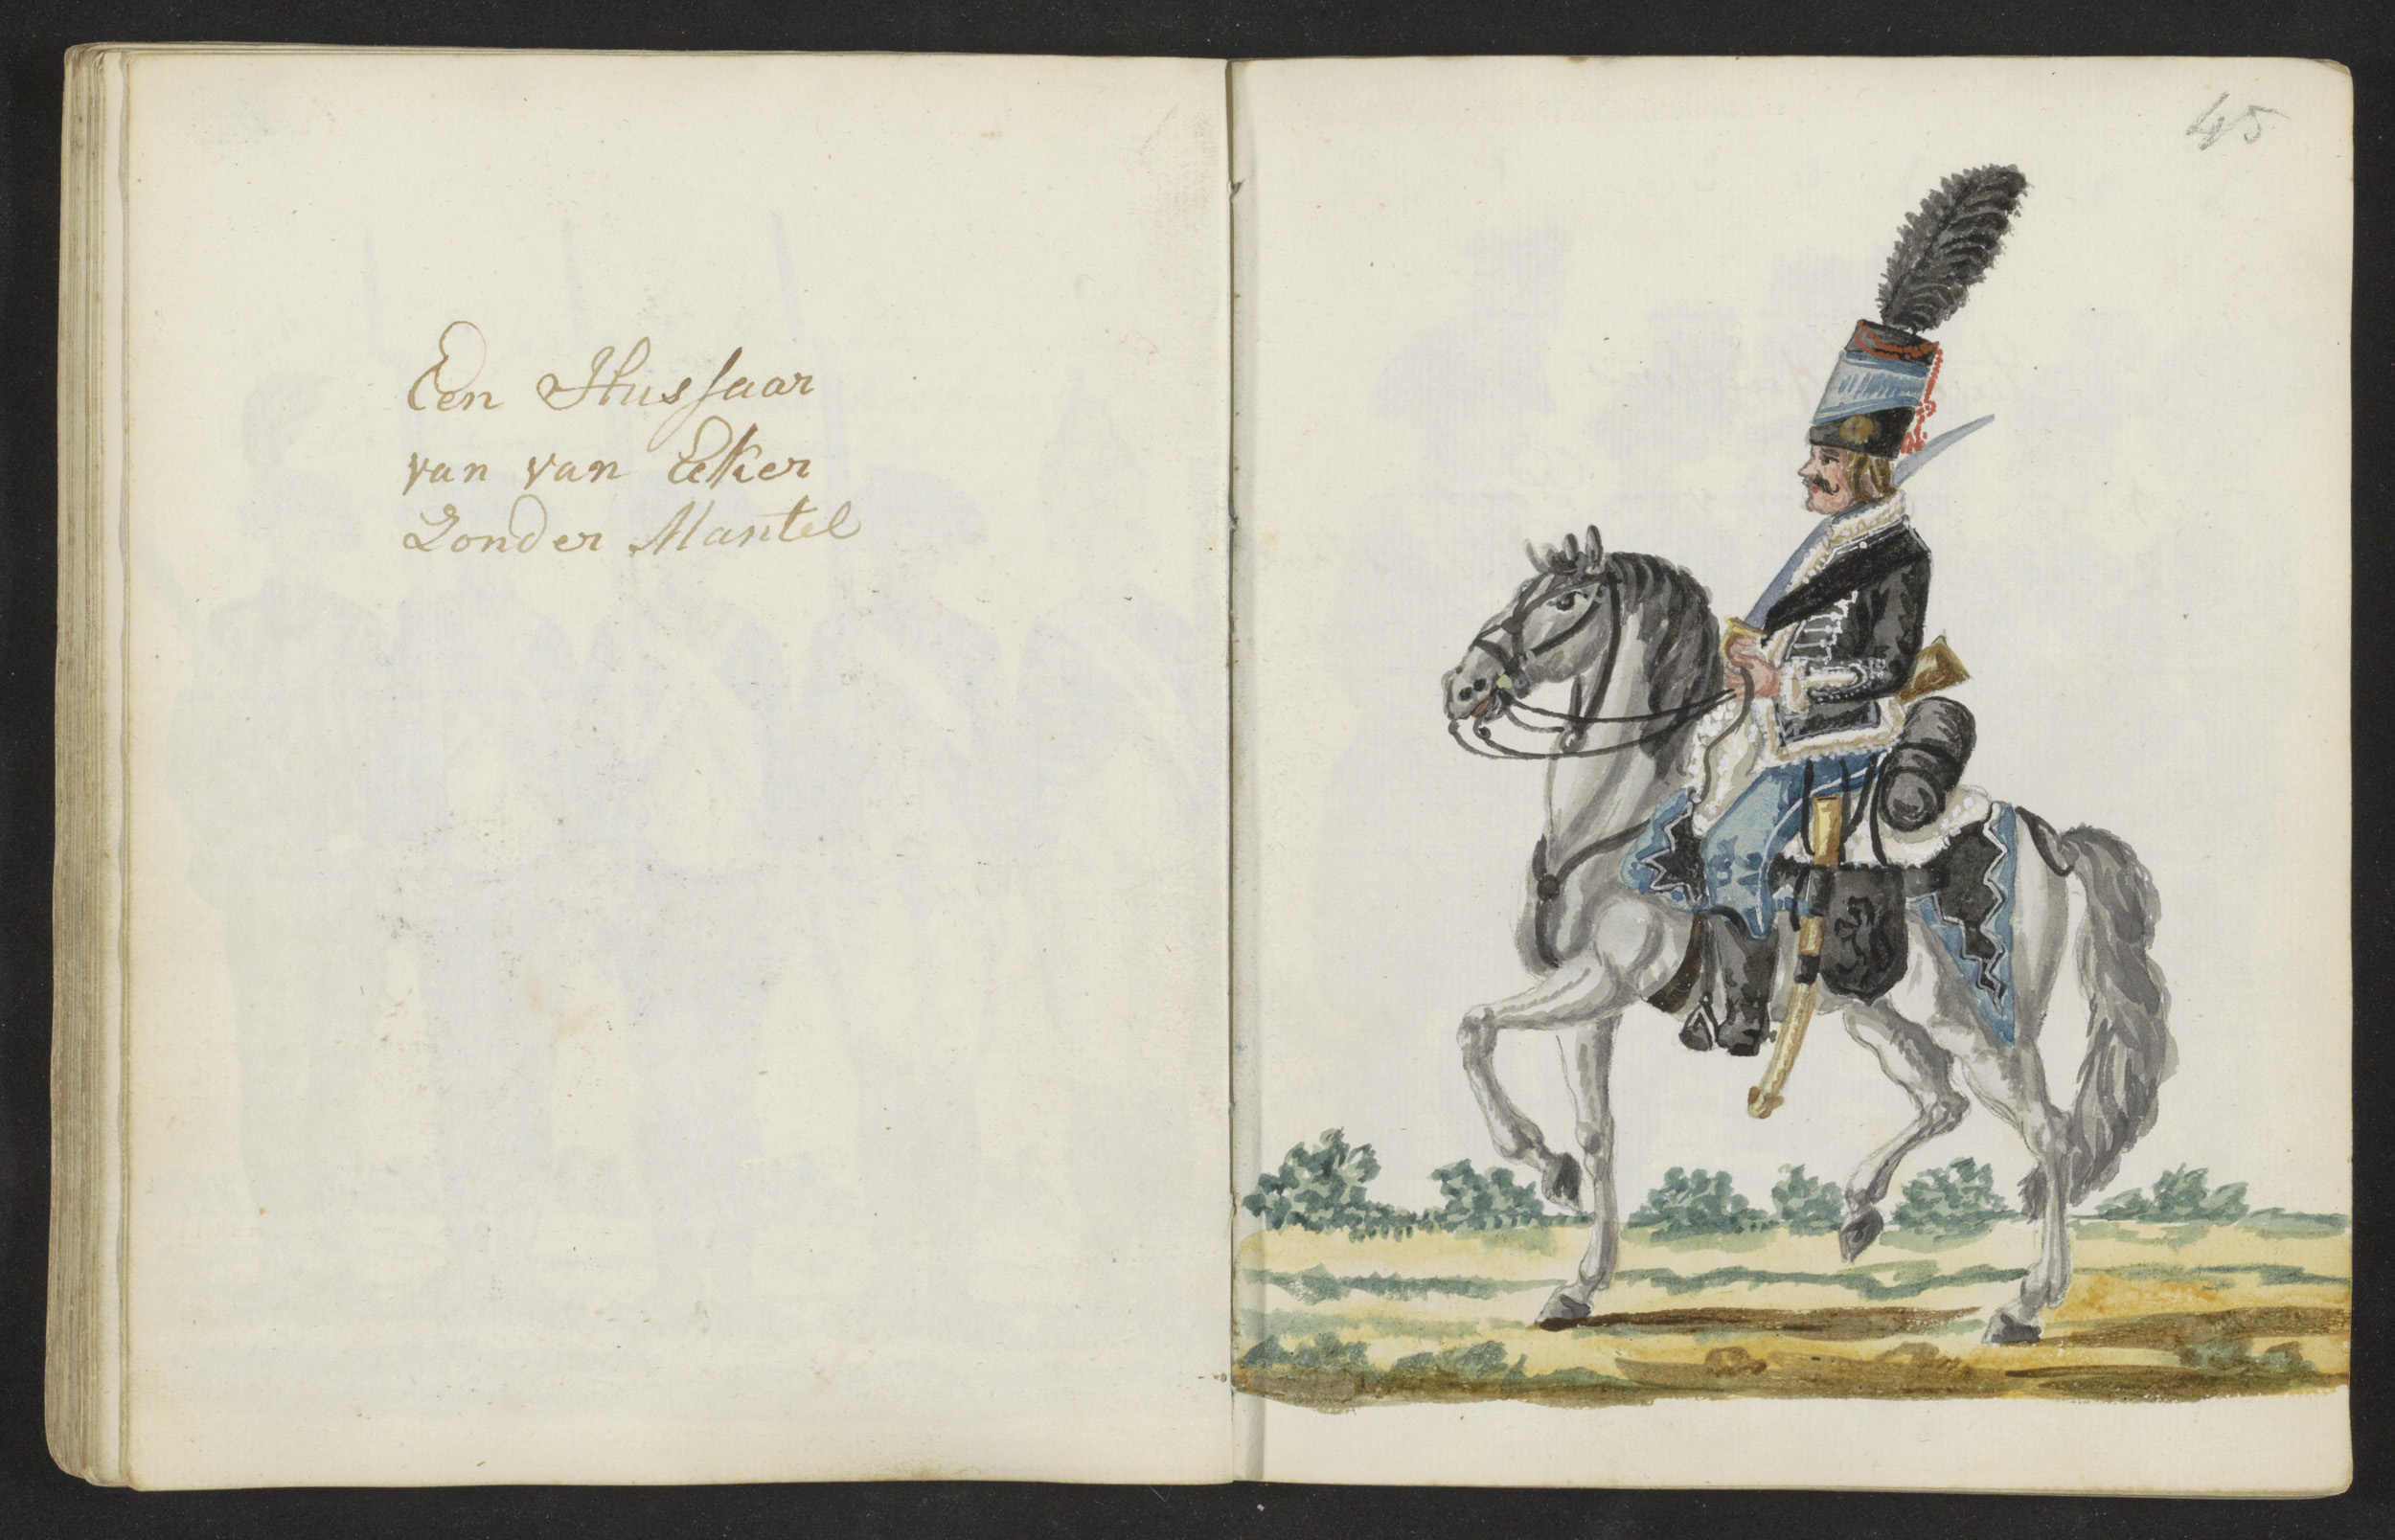 Een Hussaar
van van Eeker
Zonder Mantel
45